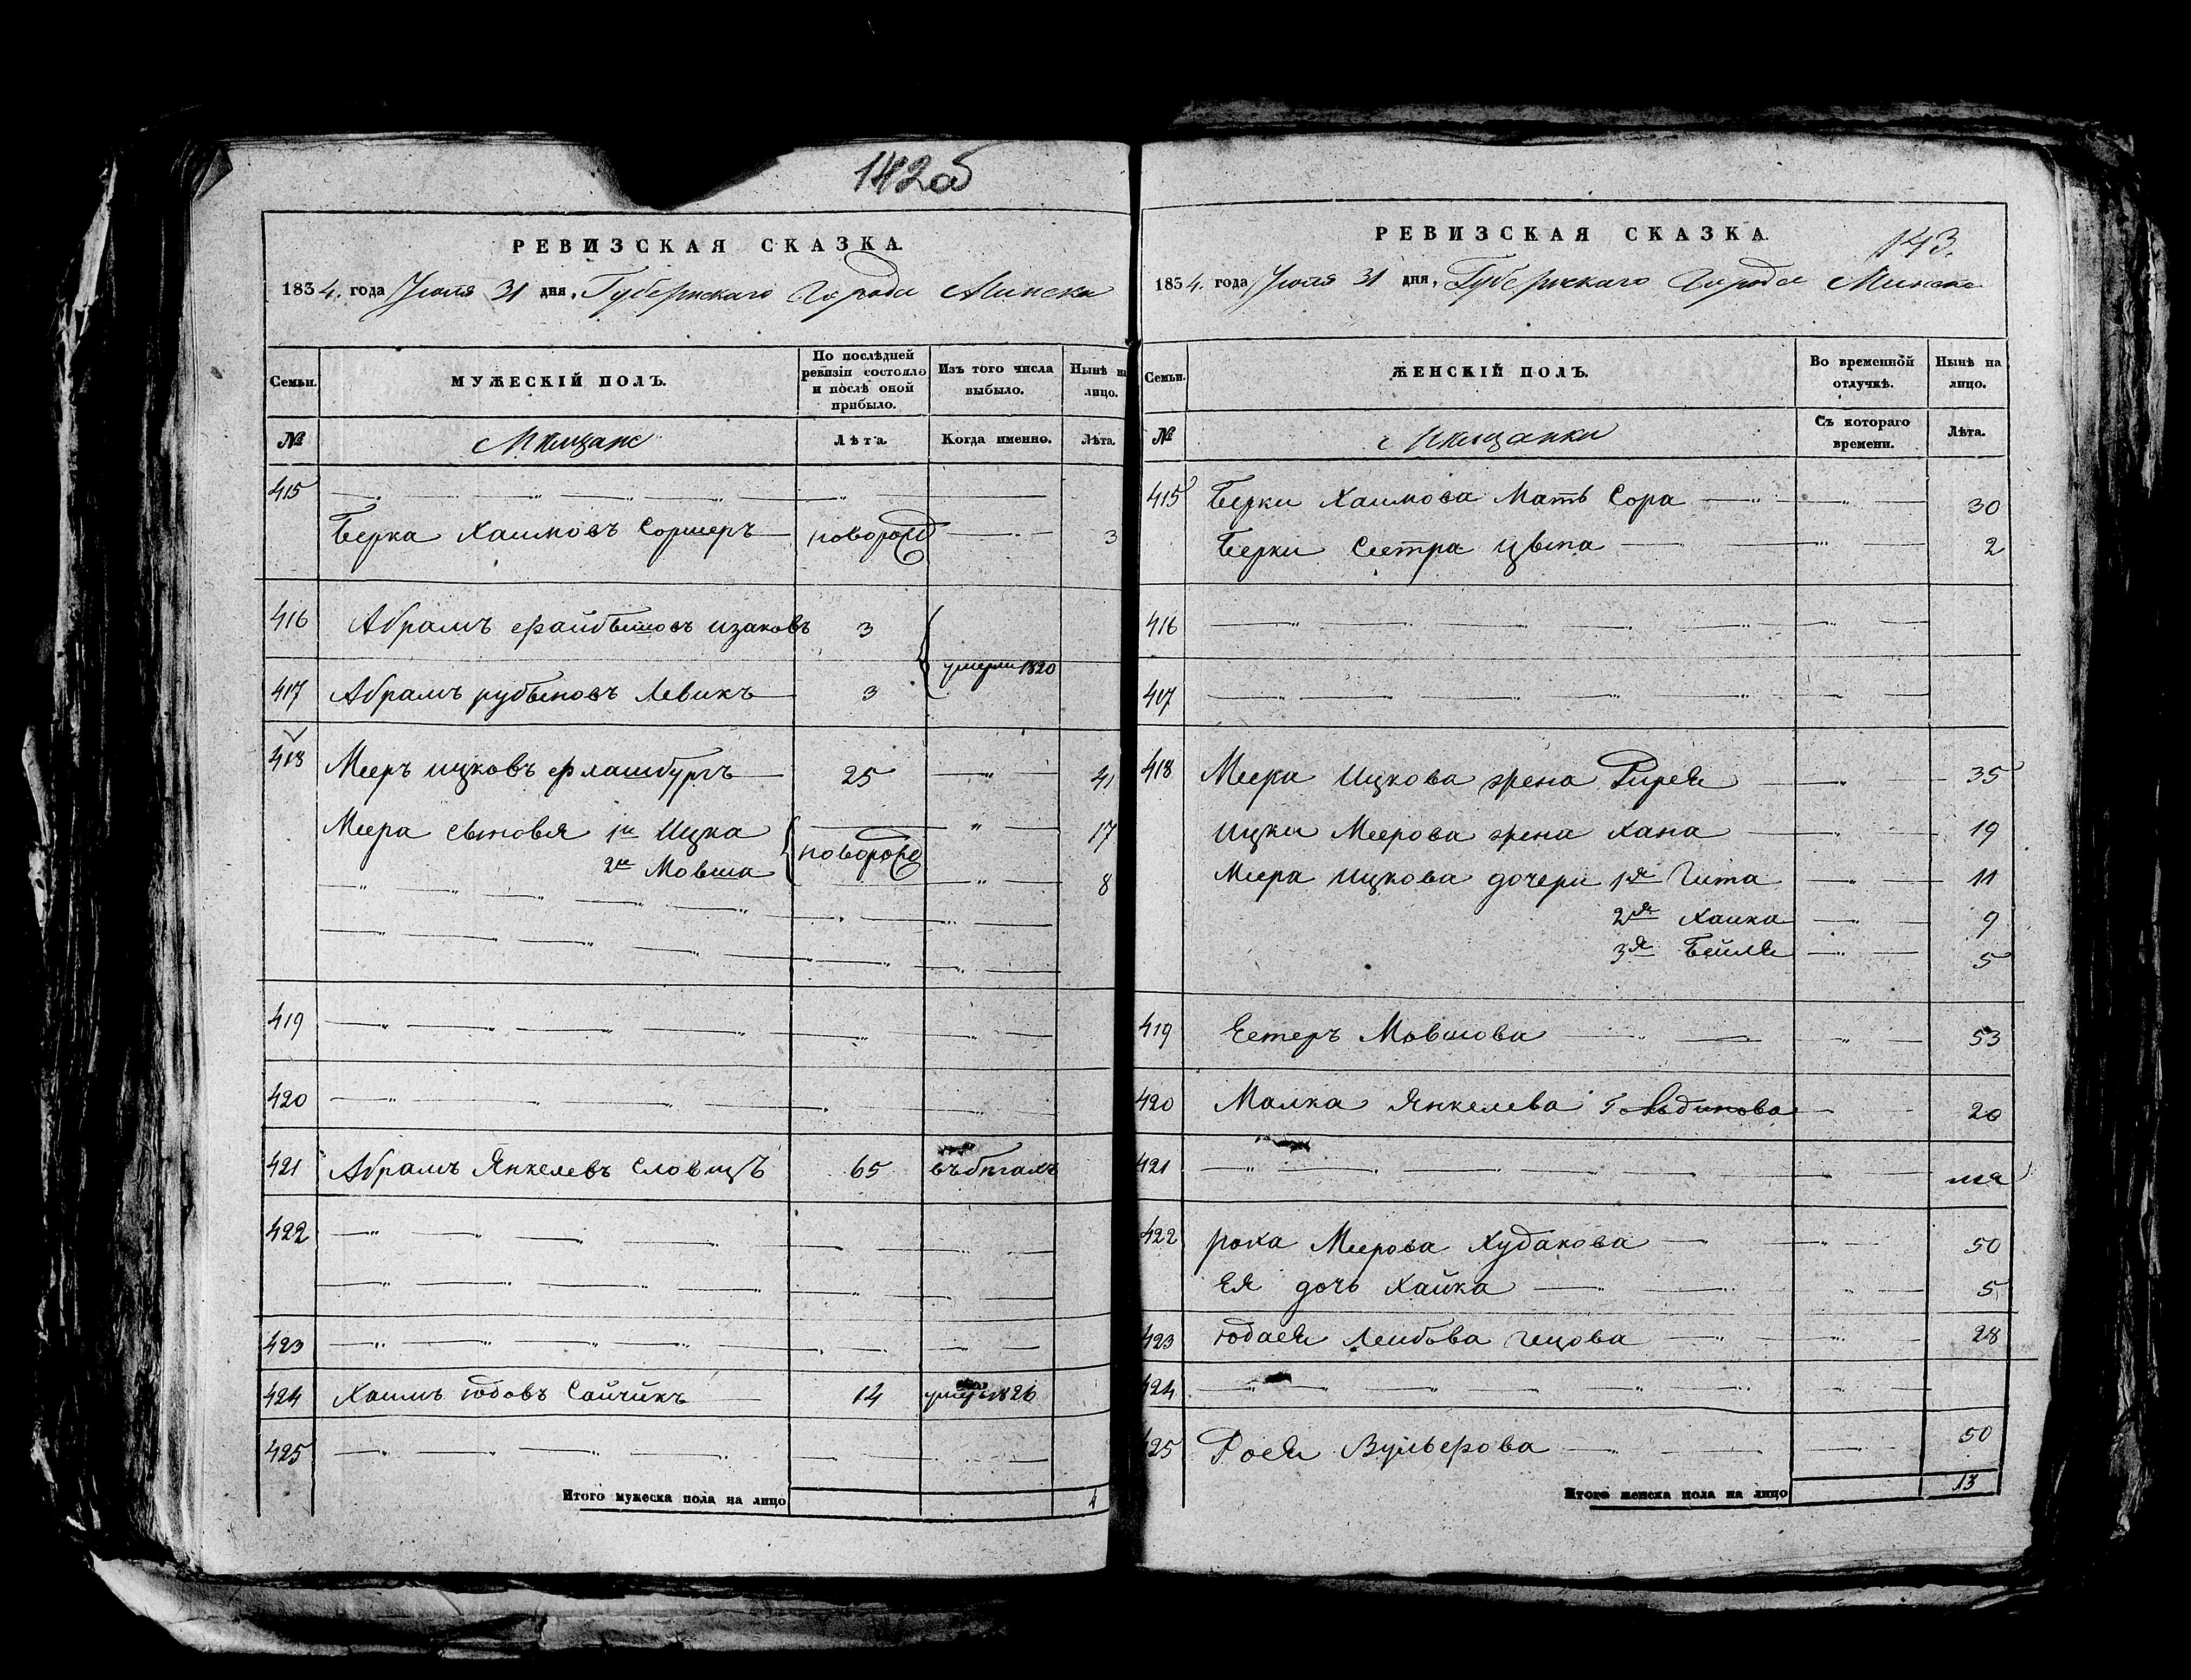 142об
РЕВИЗСКАЯ СКАЗКА.
1834. года Іюля 31 дня. Губернскаго Города Минска
Семьи. МУЖЕСКІЙ ПОЛЪ. По послѣдней ревизіи состояло и послѣ оной прибыло. Изъ того числа выбыло. Нынѣ на лицо.
№ Мѣщане Лѣта. Когда именно. Лѣта.
415
Берка Хаимовъ Соршеръ новорожд 3
416 Абрамъ Файбишовъ Изаковъ 3
умерли 1820
417 Абрамъ Рубиновъ Левикъ 3
418 Мееръ Ицковъ Флашбургъ 25 41
Меера сыновья 1й Ицка новорожд 17
2й Мовша 8
419
420
421 Абрамъ Янкелевъ Словищъ 65 въ бѣгахъ
422
423
424 Хаимъ Юдовъ Сайчикъ 14 1826
425
Итого мужеска пола на лицо 4
143.
РЕВИЗСКАЯ СКАЗКА.
1834. года Іюля 31 дня. Губернскаго Города Минска
Семьи. ЖЕНСКІЙ ПОЛЪ. Во временной отлучкѣ. Нынѣ на лицо.
№ Мѣщанки Съ котораго времени. Лѣта.
415 Берки Хаимова Мать Сора 30
Берки Сестра Цвѣпа 2
416
417
418 Меера Ицкова жена 35
Ицки Меерова жена Хана 19
Меера Ицкова дочери 1я Гита 11
2я Хаика 9
3я Бейля 5
419 Естеръ Мовшова 53
420 Малка Янкелева Гольдинова 20
421
422 Роха Меерова Худакова 50
Ея дочь Хайка 5
423 Юдася Леибова 28
424
425 Рося Вульфова 50
Итого женска пола на лицо 13